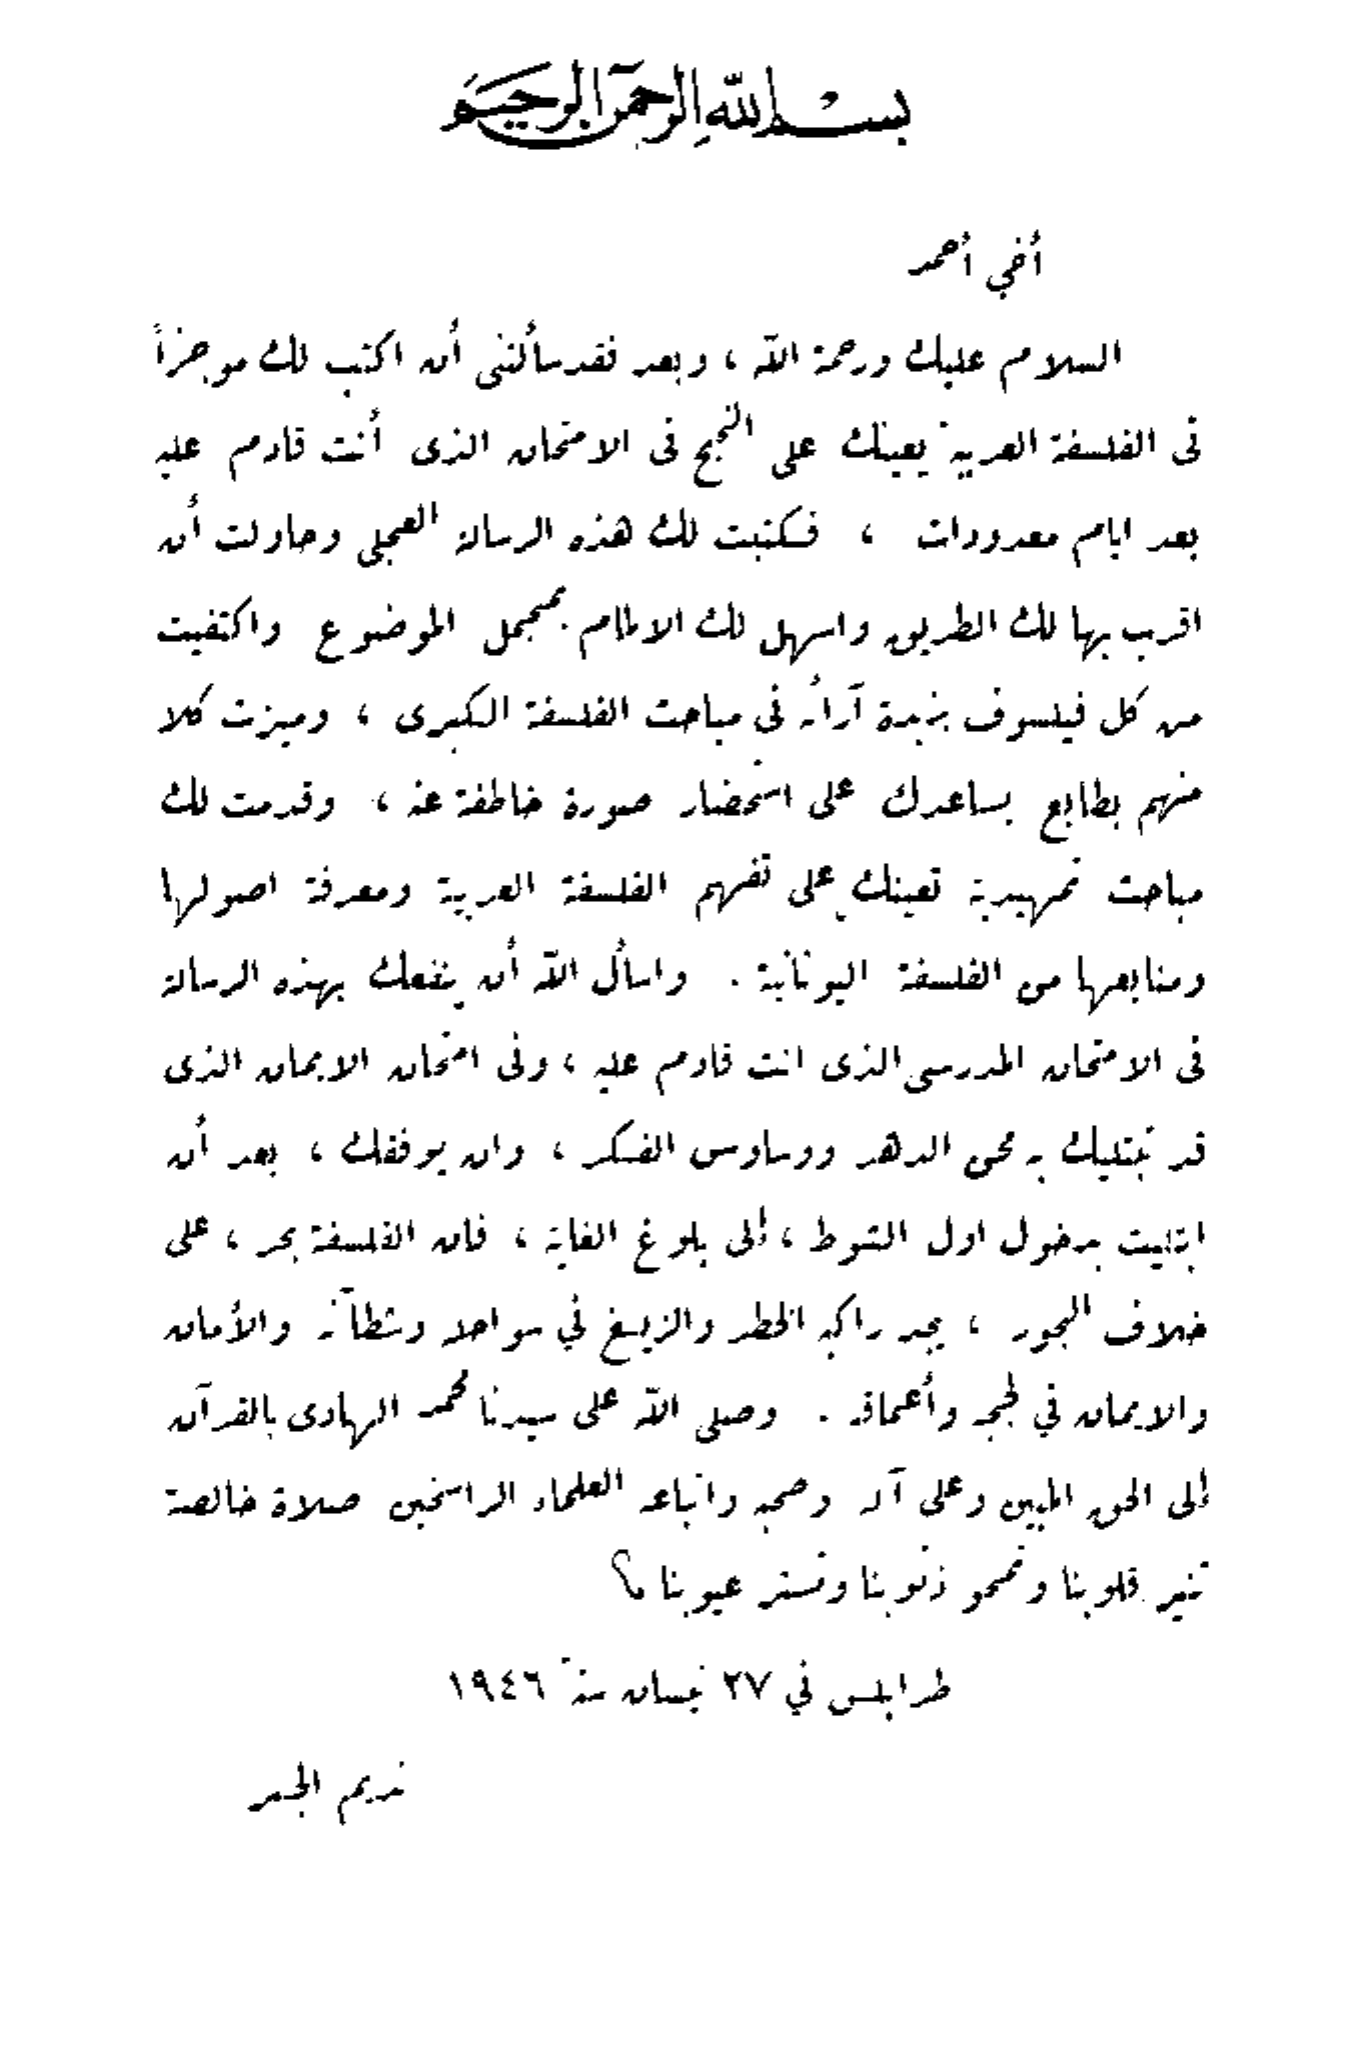 بسم الله الرحمن الرحيم
أخي أحمد
السلام عليك ورحمة الله ، وبعد فقد سألتني أن اكتب لك موجزاً
في الفلسفة العربية يعينك على النجح في الامتحان الذي أنت قادم عليه
بعد ايام معدودات ، فكتبت لك هذه الرسالة العجلى وحاولت أن
اقرب بها لك الطريق واسهل لك الالمام بمجمل الموضوع واكتفيت
من كل فيلسوف بزبدة آرائه في مباحث الفلسفة الكبرى ، وميزت كلا
منهم بطابع يساعدك على استحضار صورة خاطفة عنه ، وقدمت لك
مباحث تمهيدية تعينك على تفهم الفلسفة العربية ومعرفة اصولها
ومنابعها من الفلسفة اليونانية . واسأل الله أن ينفعك بهذه الرسالة
في الامتحان المدرسي الذي انت قادم عليه ، وفي امتحان الايمان الذي
قد تبتليك به محن الدهر ووساوس الفكر ، وان يوفقك ، بعد أن
ابتليت بدخول اول الشوط ، إلى بلوغ الغاية ، فان الفلسفة بحر ، على
خلاف البحور ، يجد راكبه الخطر والزيغ في سواحله وشطآنه والأمان
والايمان في لججه وأعماقه . وصلى الله على سيدنا محمد الهادي بالقرآن
إلى الحق المبين وعلى آله وصحبه واتباعه العلماء الراسخين صلاة خالصة
تنير قلوبنا وتمحو ذنوبنا وتستر عيوبنا
طرابلس في ٢٧ نيسان سنة ١٩٤٦
نديم الجسر